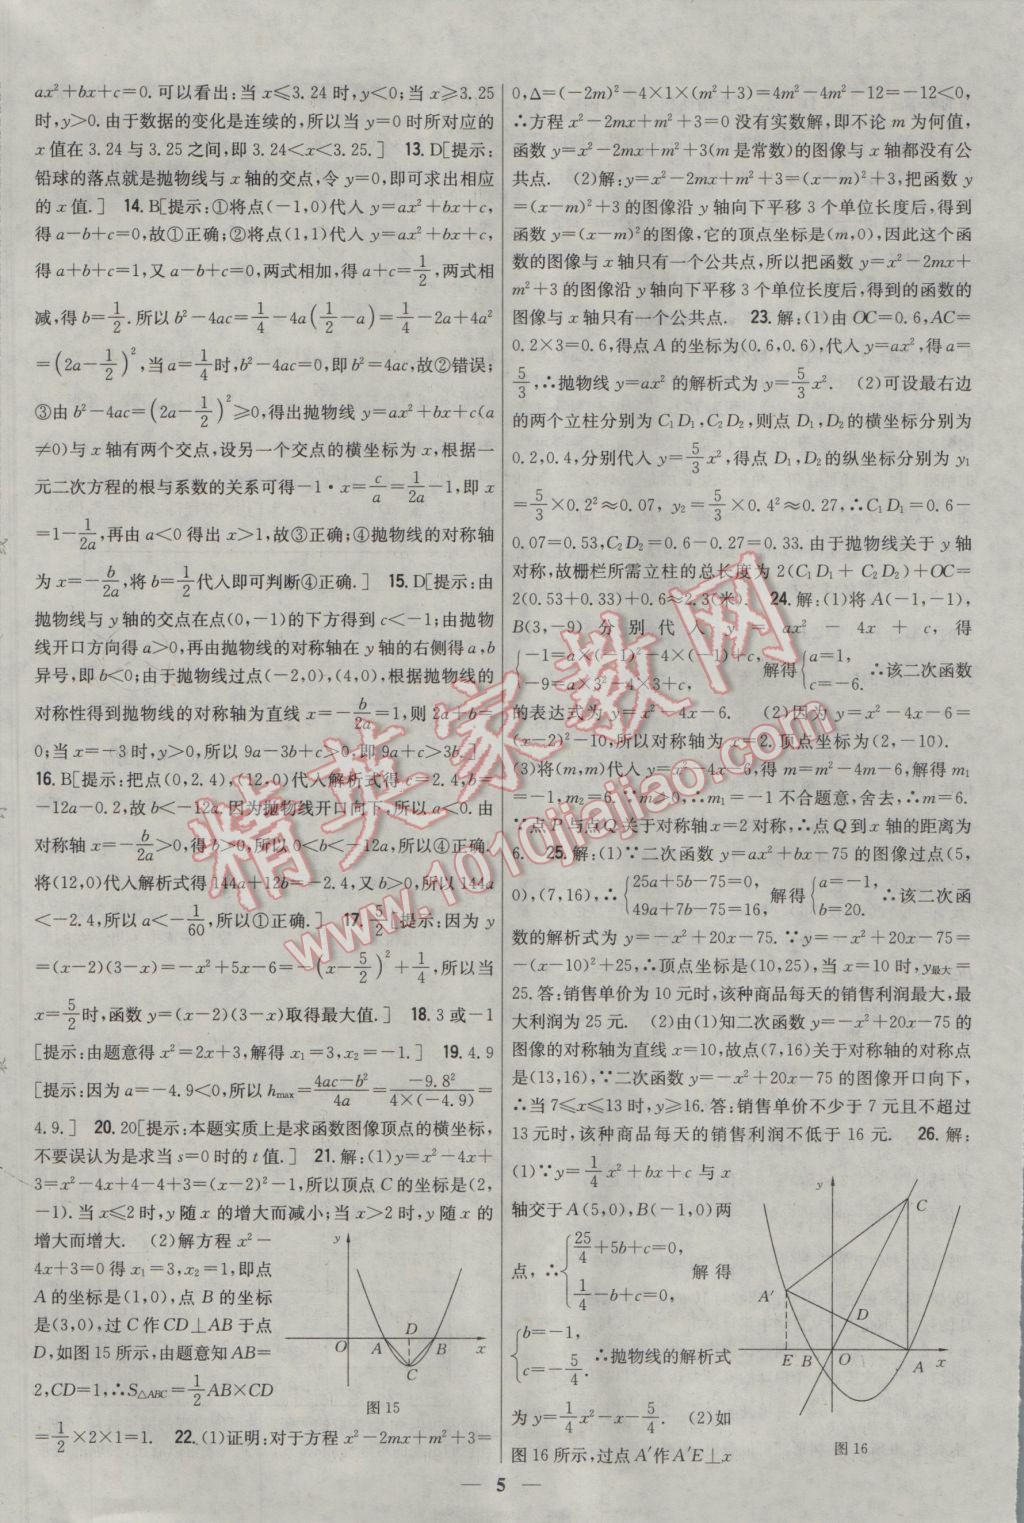 ax²+bx+c=0. 可以看出:当 x≤3.24 时,y<0;当 x≥3.25
时,y>0. 由于数据的变化是连续的,所以当 y=0 时所对应的
x 值在 3.24 与 3.25 之间,即 3.24<x<3.25.] 13. D[提示:
铅球的落点就是抛物线与 x 轴的交点,令 y=0,即可求出相应
的 x 值.] 14. B[提示:①将点(-1,0)代入 y=ax²+bx+c,
得 a-b+c=0,故①正确;②将点(1,1)代入 y=ax²+bx+c,
得 a+b+c=1,又 a-b+c=0,两式相加,得 a+c=1/2,两式相
减,得 b=1/2. 所以 b²-4ac=1/4-4a(1/2-a)=1/4-2a+4a²
=(2a-1/2)²,当 a=1/4时,b²-4ac=0,即 b²=4ac,故②错误;
③由 b²-4ac=(2a-1/2)²≥0,得出抛物线 y=ax²+bx+c(a
≠0)与 x 轴有两个交点,设另一个交点的横坐标为 x,根据一
元二次方程的根与系数的关系可得-1·x=c/a=1/2a-1,即 x
=1-1/2a,再由 a<0 得出 x>1,故③正确;④抛物线的对称轴
为 x=-b/2a,将 b=1/2代入即可判断④正确.] 15. D[提示:由
抛物线与 y 轴的交点在点(0,-1)的下方得到 c<-1;由抛物
线开口方向得 a>0,再由抛物线的对称轴在 y 轴的右侧得 a,b
异号,即 b<0;由于抛物线过点(-2,0),(4,0),根据抛物线的
对称性得到抛物线的对称轴为直线 x=-b/2a=1,则 2a+b=
0;当 x=-3 时,y>0,所以 9a-3b+c>0,即 9a+c>3b.]
16. B[提示:把点(0,2.4),(12,0)代入解析式得 c=2.4,b=
-12a-0.2,故 b<-12a. 因为抛物线开口向下,所以 a<0. 由
对称轴 x=-b/2a>0,得 b>0,所以 0<b<-12a,所以④正确.
将(12,0)代入解析式得 144a+12b=-2.4,又 b>0,所以 144a
<-2.4,所以 a<-1/60,所以①正确.] 17. 5/2[提示:因为 y
=(x-2)(3-x)=-x²+5x-6=-(x-5/2)²+1/4,所以当
x=5/2时,函数 y=(x-2)(3-x)取得最大值.] 18. 3 或-1
[提示:由题意得 x²=2x+3,解得 x₁=3,x₂=-1.] 19. 4.9
[提示:因为 a=-4.9<0,所以 hmax=(4ac-b²)/4a=-9.8²/(4×(-4.9))=
4.9.] 20. 20[提示:本题实质上是求函数图像顶点的横坐标,
不要误认为是求当 s=0 时的 t 值.] 21. 解:(1)y=x²-4x+
3=x²-4x+4-4+3=(x-2)²-1,所以顶点 C 的坐标是(2,
-1). 当 x≤2 时,y 随 x 的增大而减小;当 x>2 时,y 随 x 的
增大而增大. (2)解方程 x²-
4x+3=0 得 x₁=3,x₂=1,即点
A 的坐标是(1,0),点 B 的坐标
是(3,0),过 C 作 CD⊥AB 于点
D,如图 15 所示,由题意知 AB=
2,CD=1,∴S△ABC=1/2AB×CD
=1/2×2×1=1. 22. (1)证明:对于方程 x²-2mx+m²+3=
y
O
A
D
B
x
C
图 15
0,Δ=(-2m)²-4×1×(m²+3)=4m²-4m²-12=-12<0,
∴方程 x²-2mx+m²+3=0 没有实数解,即不论 m 为何值,
函数 y=x²-2mx+m²+3(m 是常数)的图像与 x 轴都没有公
共点. (2)解:y=x²-2mx+m²+3=(x-m)²+3,把函数 y
=(x-m)²+3 的图像沿 y 轴向下平移 3 个单位长度后,得到
函数 y=(x-m)²的图像,它的顶点坐标是(m,0),因此这个函
数的图像与 x 轴只有一个公共点,所以把函数 y=x²-2mx+
m²+3 的图像沿 y 轴向下平移 3 个单位长度后,得到的函数的
图像与 x 轴只有一个公共点. 23. 解:(1)由 OC=0.6,AC=
0.2×3=0.6,得点 A 的坐标为(0.6,0.6),代入 y=ax²,得 a=
5/3,∴抛物线 y=ax² 的解析式为 y=5/3x². (2)可设最右边
的两个立柱分别为 C₁D₁,C₂D₂,则点 D₁,D₂的横坐标分别为
0.2,0.4,分别代入 y=5/3x²,得点 D₁,D₂的纵坐标分别为 y₁
=5/3×0.2²≈0.07, y₂=5/3×0.4²≈0.27,∴C₁D₁=0.6-
0.07=0.53,C₂D₂=0.6-0.27=0.33. 由于抛物线关于 y 轴
对称,故栅栏所需立柱的总长度为 2(C₁D₁+C₂D₂)+OC=
2(0.53+0.33)+0.6≈2.3(米). 24. 解:(1)将 A(-1,-1),
B(3,-9)分别代入 y=ax²-4x+c,得
{-1=a×(-1)²-4×(-1)+c, -9=a×3²-4×3+c, 解得{a=1, c=-6. ∴该二次函数
的表达式为 y=x²-4x-6. (2)因为 y=x²-4x-6=
(x-2)²-10,所以对称轴为 x=2. 顶点坐标为(2,-10).
(3)将(m,m)代入 y=x²-4x-6,得 m=m²-4m-6,解得 m₁
=-1,m₂=6. ∵m>0,∴m₁=-1 不合题意,舍去,∴m=6.
∵点 P 与点Q 关于对称轴 x=2 对称,∴点 Q到 x 轴的距离为
6. 25. 解:(1)∵二次函数 y=ax²+bx-75 的图像过点(5,
0),(7,16),∴{25a+5b-75=0, 49a+7b-75=16, 解得{a=-1, b=20. ∴该二次函
数的解析式为 y=-x²+20x-75. ∵y=-x²+20x-75=
-(x-10)²+25,∴顶点坐标是(10,25),当 x=10 时,y最大=
25. 答:销售单价为 10 元时,该种商品每天的销售利润最大,最
大利润为 25 元. (2)由(1)知二次函数 y=-x²+20x-75 的
图像的对称轴为直线 x=10,故点(7,16)关于对称轴的对称点
是(13,16),∵二次函数 y=-x²+20x-75 的图像开口向下,
∴当 7≤x≤13 时,y≥16. 答:销售单价不少于 7 元且不超过
13 元时,该种商品每天的销售利润不低于 16 元. 26. 解:
(1)∵y=1/4x²+bx+c 与 x
轴交于 A(5,0),B(-1,0)两
点,∴{25/4+5b+c=0, 1/4-b+c=0, 解得
{b=-1, c=-5/4. ∴抛物线的解析式
为 y=1/4x²-x-5/4. (2)如
图 16 所示,过点 A′作 A′E⊥x
y
C
A′
D
E
B
O
A
x
图 16
5
精英家教网
www.1010jiajiao.com